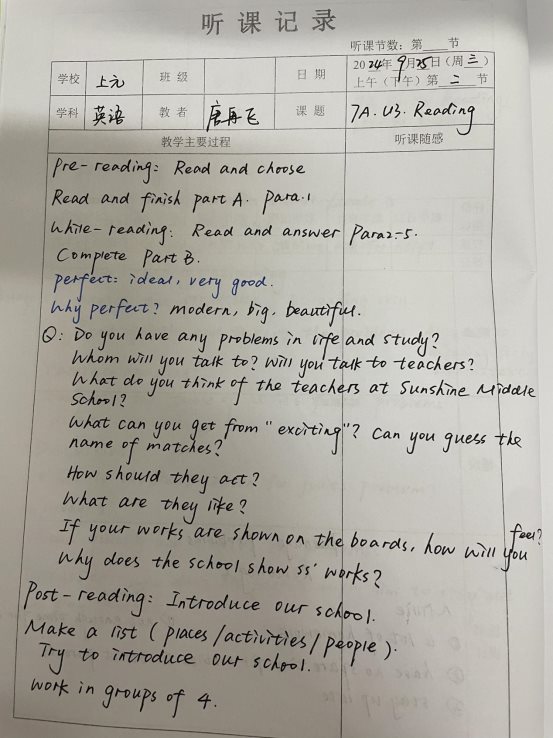 听课记录
听课节数：第 节
学校 上元 班级 日期 2024年9月25日（周三）
上午（下午）第二节
学科 英语 教者 唐再飞 课题 7A. U3. Reading
教学主要过程 听课随感
Pre-reading: Read and choose
Read and finish part A. Para.1
While-reading: Read and answer Para2-5.
Complete Part B.
perfect: ideal, very good.
Why perfect? modern, big, beautiful.
Q: Do you have any problems in life and study?
Whom will you talk to? Will you talk to teachers?
What do you think of the teachers at Sunshine Middle
School?
What can you get from "exciting"? Can you guess the
name of matches?
How should they act?
What are they like?
If your works are shown on the boards, how will you feel?
Why does the school show ss' works?
Post-reading: Introduce our school.
Make a list (places/activities/people).
Try to introduce our school.
Work in groups of 4.